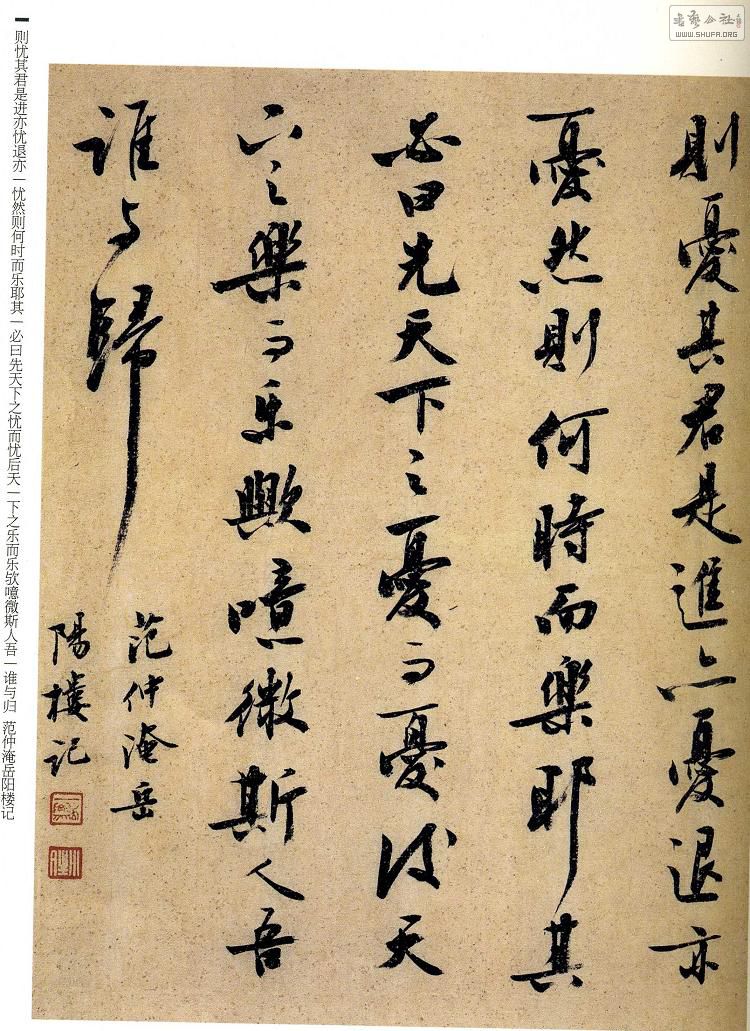 則憂其君是進亦憂退亦
憂然則何時而樂耶其
必曰先天下之憂而憂後天
下之樂而乐歟噫微斯人吾
誰与歸
范仲淹岳
陽樓記
则忧其君是进亦忧退亦|忧然则何时而乐耶其|必曰先天下之忧而忧后天|下之乐而乐欤噫微斯人吾|谁与归 范仲淹岳阳楼记
書藝公社
WWW.SHUFA.ORG